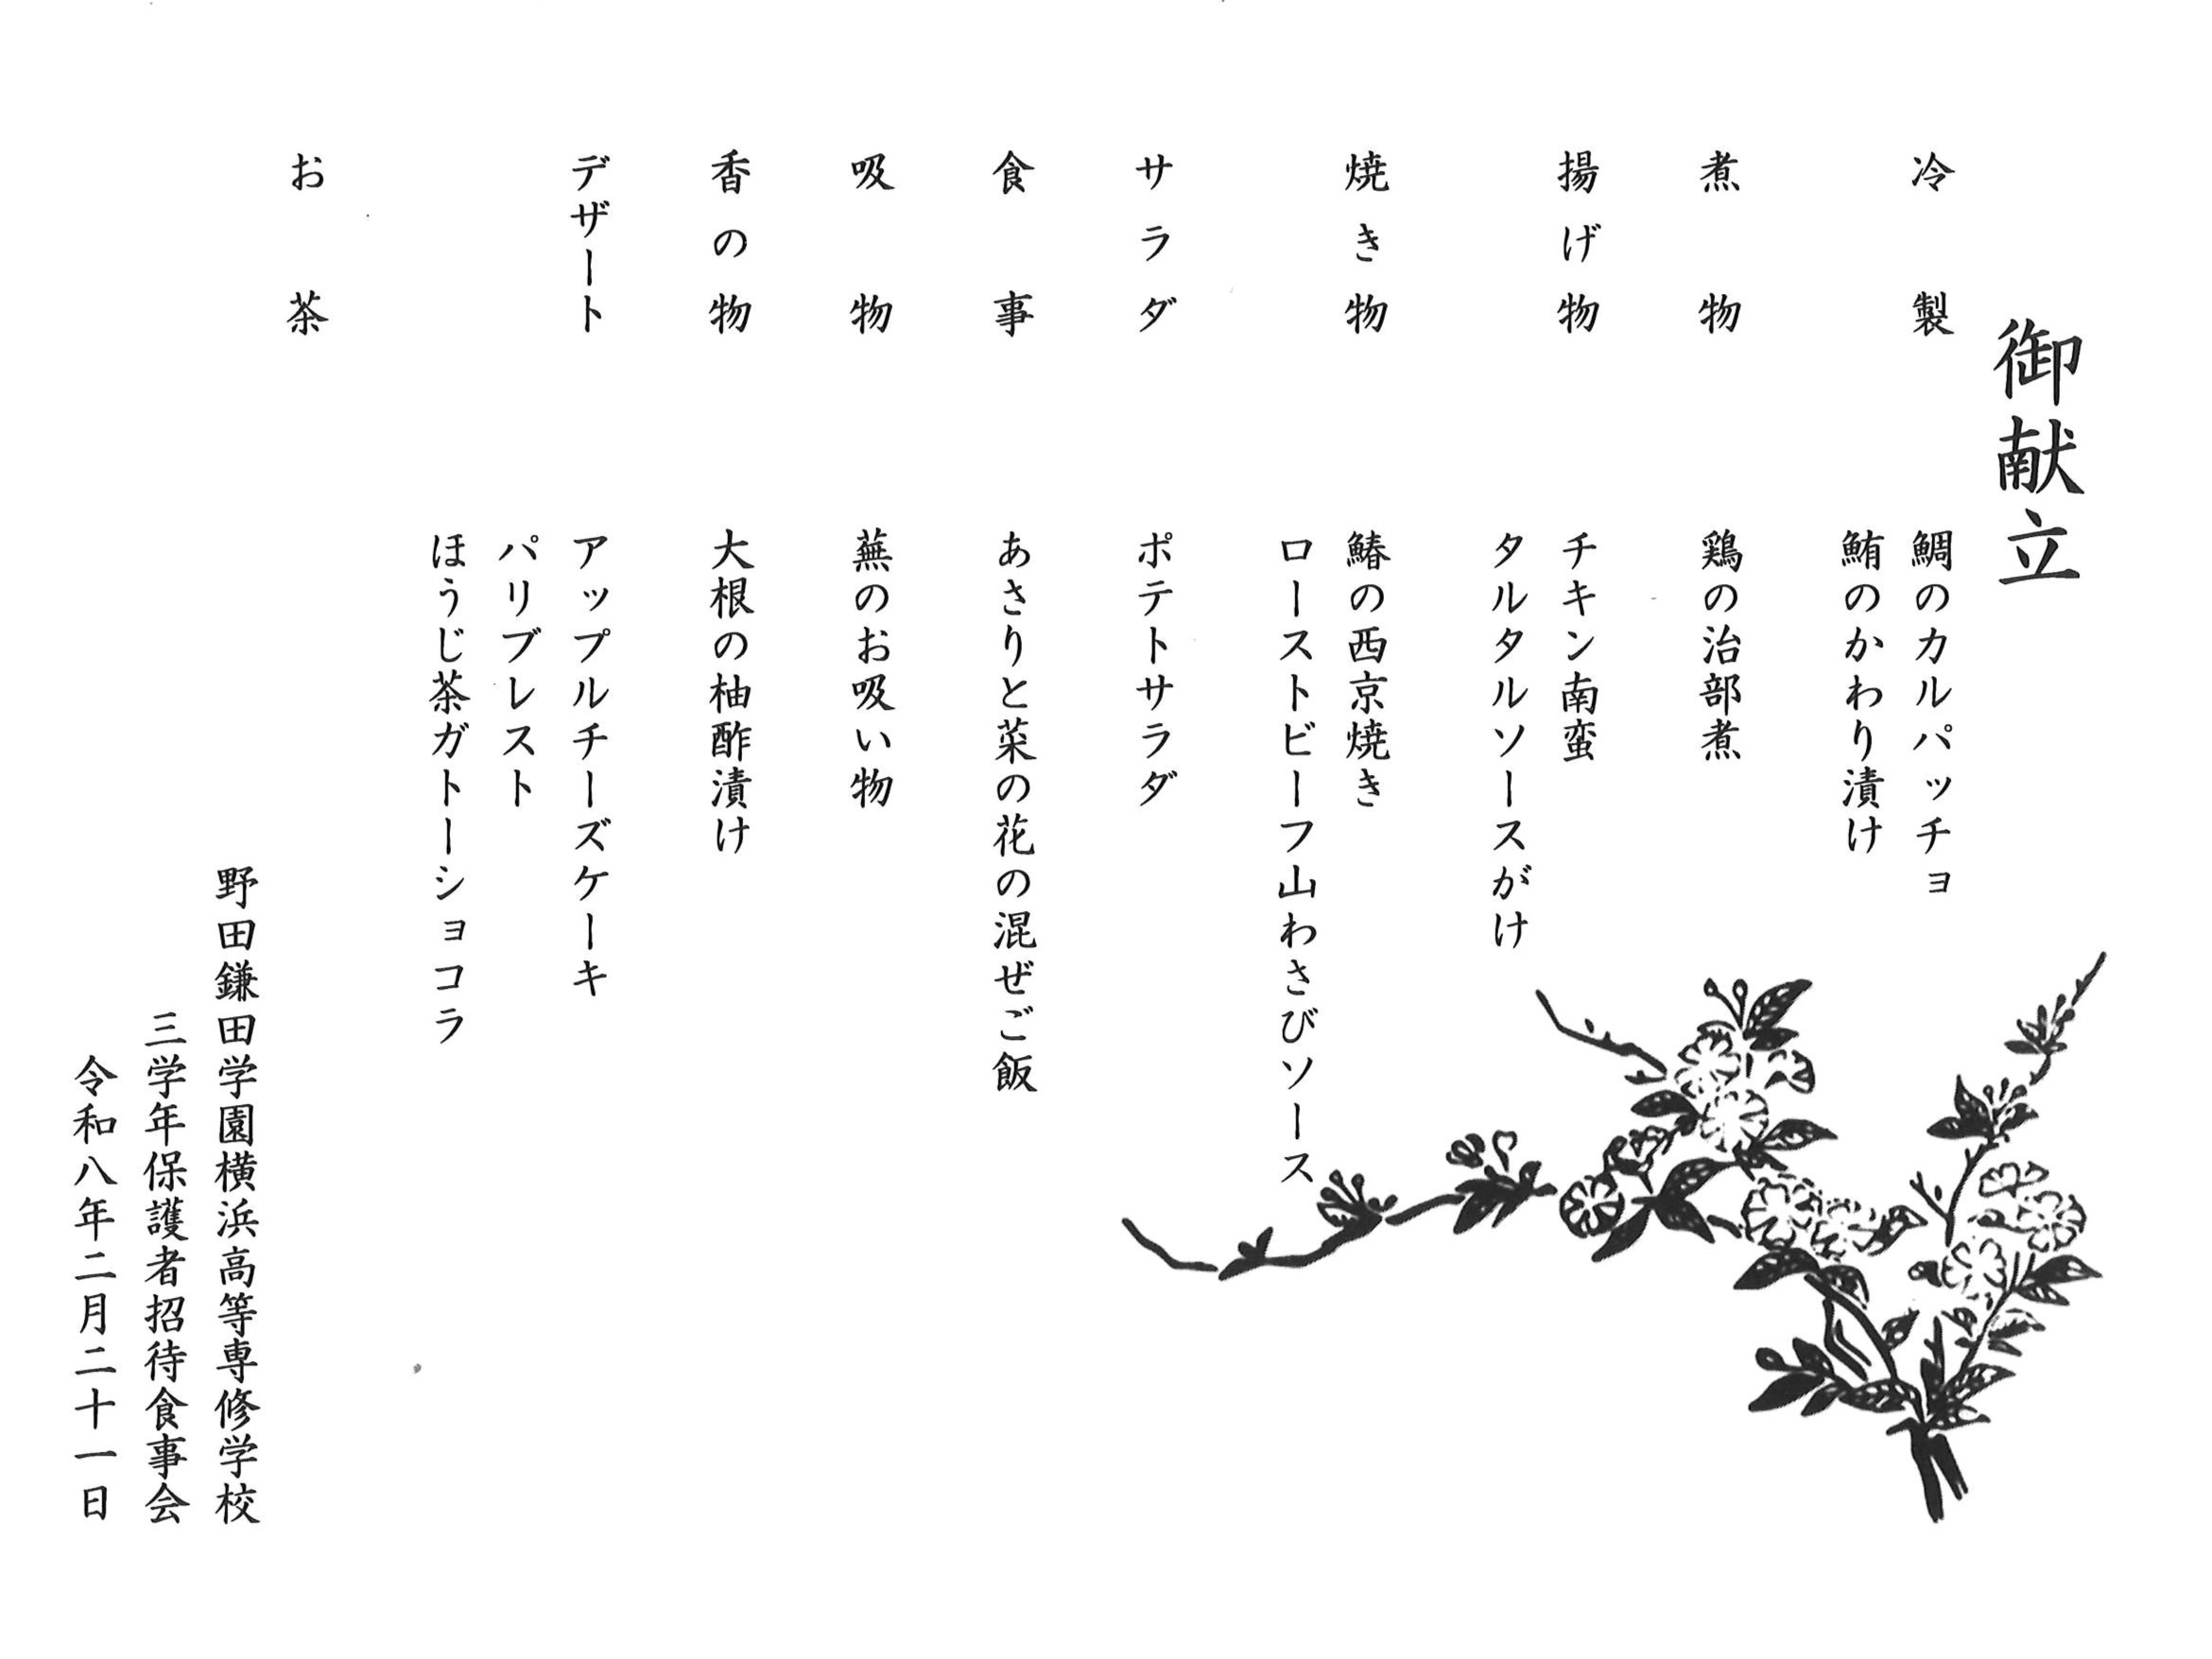 御献立
冷製 鯛のカルパッチョ
鮪のかわり漬け
煮物 鶏の治部煮
揚げ物 チキン南蛮
タルタルソースがけ
焼き物 鰆の西京焼き
ローストビーフ山わさびソース
サラダ ポテトサラダ
食事 あさりと菜の花の混ぜご飯
吸物 蕪のお吸い物
香の物 大根の柚酢漬け
デザート アップルチーズケーキ
パリブレスト
ほうじ茶ガトーショコラ
お茶
野田鎌田学園横浜高等専修学校
三学年保護者招待食事会
令和八年二月二十一日